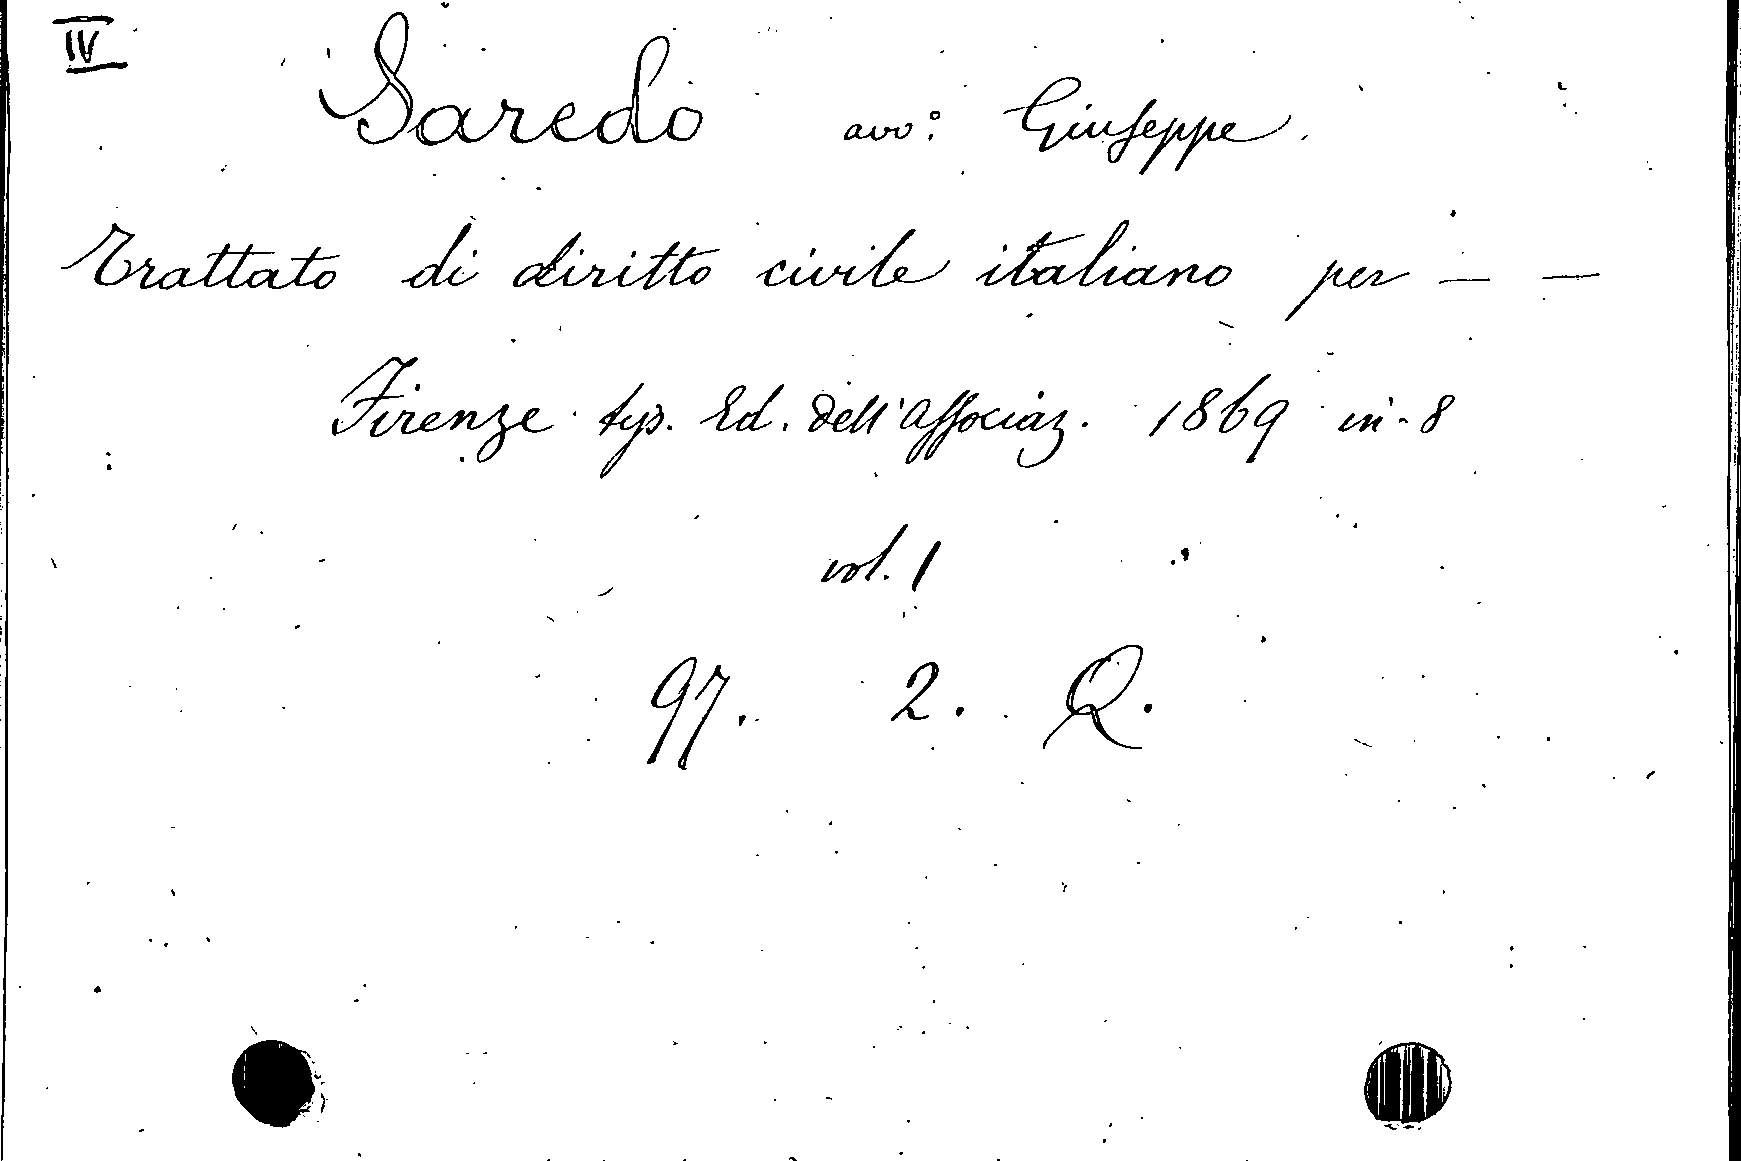 IV
Saredo avv:° Giuseppe.
Trattato di diritto civile italiano per — —
Firenze tip. Ed. dell'Associaz. 1869 in-8
vol. 1
97. 2. Q.